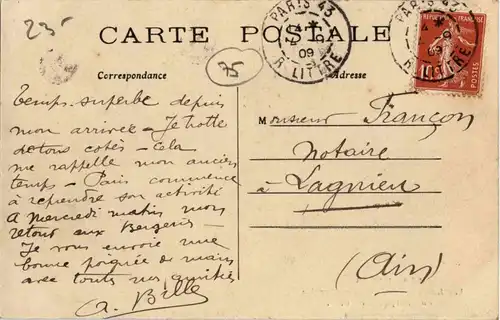 23
CARTE POSTALE
PARIS 43
09
R LITTRE
PARIS 43
09
R LITTRE
REPUBLIQUE FRANÇAISE
POSTES
75
Correspondance
Adresse
Temps superbe depuis
mon arrivée – Je trotte
de tous cotés – Cela
me rappelle mon ancien
temps – Paris commence
à reprendre son activité
A mercredi matin mon
retour aux Bergeries
Je vous envoie une
bonne poignée de main
avec toutes nos amitiés
A. Bille
Monsieur Françon
Notaire
à Lagnieu
(Ain)